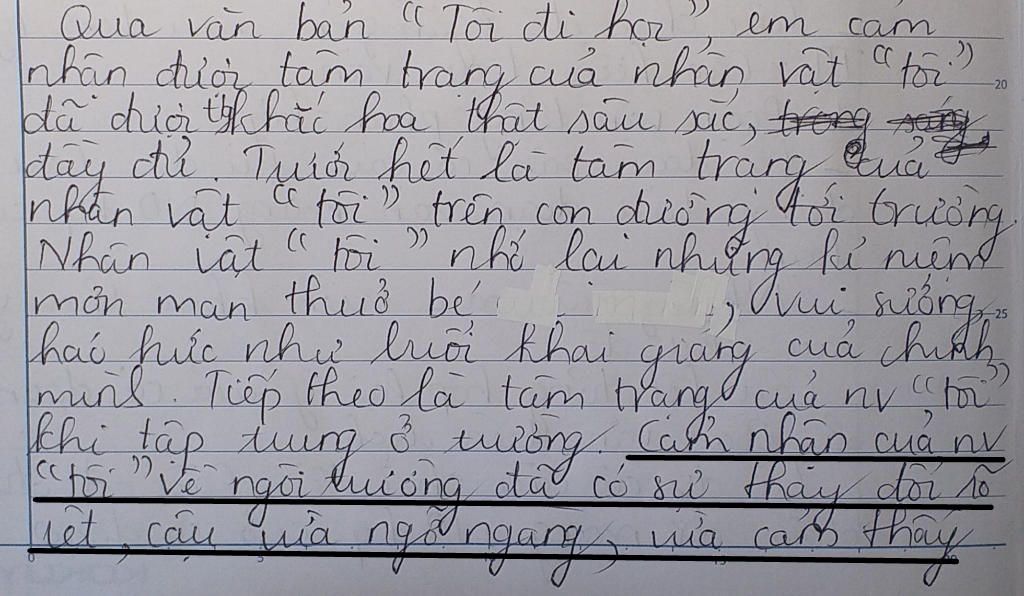 Qua văn bản "Tôi đi học", em cảm
nhận được tâm trạng của nhân vật "tôi"
đã được khắc họa thật sâu sắc,
đầy đủ. Trước hết là tâm trạng của
nhân vật "tôi" trên con đường tới trường.
Nhân vật "tôi" nhớ lại những kỉ niệm
mơn man thuở bé, vui sướng,
háo hức như buổi khai giảng của chính
mình. Tiếp theo là tâm trạng của nv "tôi"
khi tập trung ở trường. Cảm nhận của nv
"tôi" về ngôi trường đã có sự thay đổi rõ
rệt, cậu vừa ngỡ ngàng, vừa cảm thấy
20
25